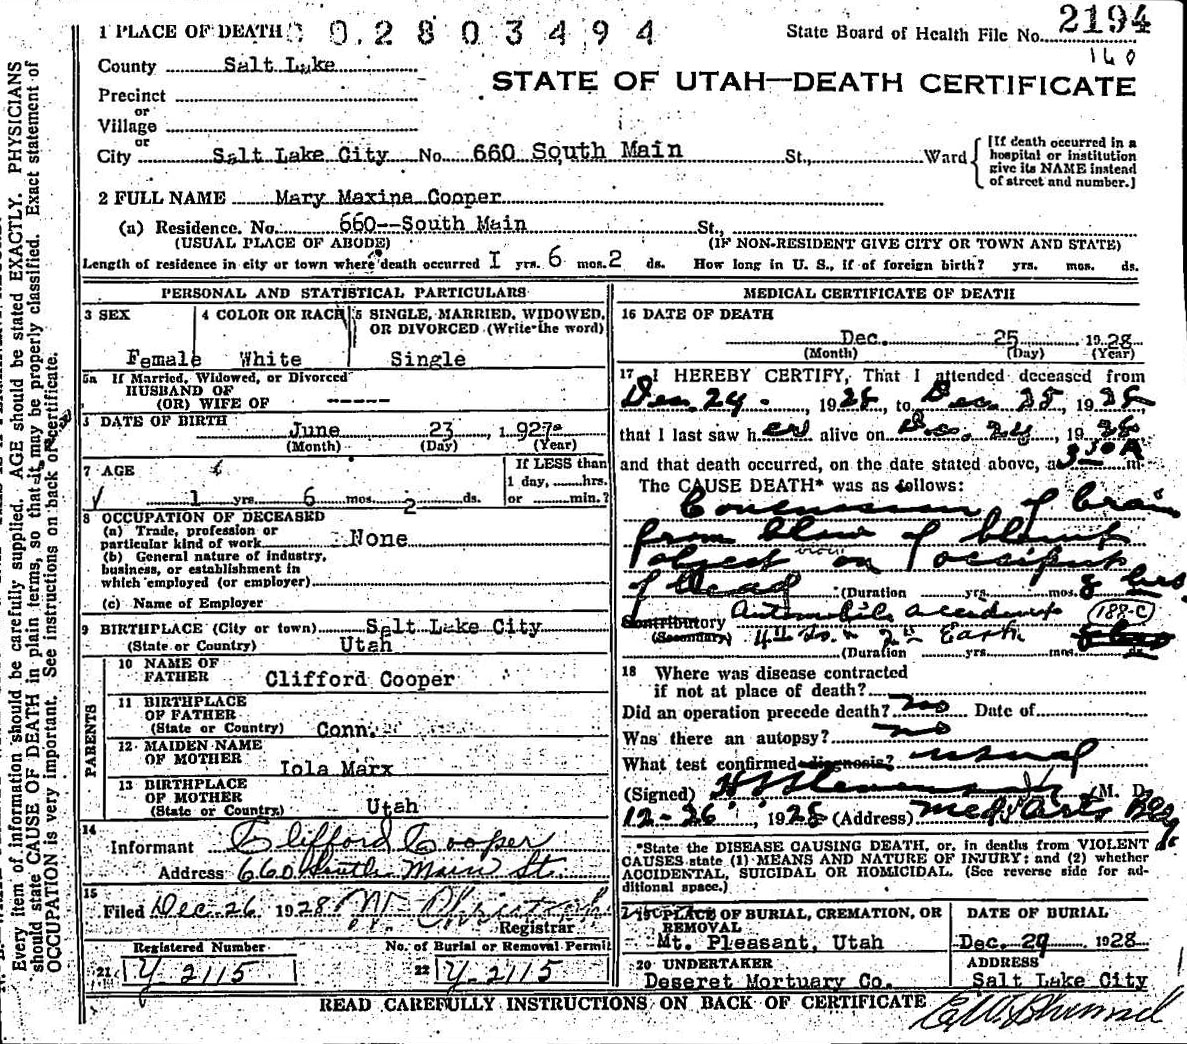 1 PLACE OF DEATH 0.2803494
State Board of Health File No. 2194
160
County Salt Lake
STATE OF UTAH—DEATH CERTIFICATE
Precinct
or
Village
or
City Salt Lake City No. 660 South Main St., Ward
[If death occurred in a
hospital or institution
give its NAME instead
of street and number.]
2 FULL NAME Mary Maxine Cooper
(a) Residence. No. 660--South Main St.,
(USUAL PLACE OF ABODE) (IF NON-RESIDENT GIVE CITY OR TOWN AND STATE)
Length of residence in city or town where death occurred I yrs. 6 mos. 2 ds. How long in U. S., if of foreign birth? yrs. mos. ds.
PERSONAL AND STATISTICAL PARTICULARS
3 SEX
Female
4 COLOR OR RACE
White
5 SINGLE, MARRIED, WIDOWED,
OR DIVORCED (Write the word)
Single
5a If Married, Widowed, or Divorced
HUSBAND OF
(OR) WIFE OF -----
DATE OF BIRTH June 23, 1927
(Month) (Day) (Year)
7 AGE
1 yrs. 6 mos. 2 ds.
If LESS than
1 day, hrs.
or min.?
8 OCCUPATION OF DECEASED
(a) Trade, profession or
particular kind of work None
(b) General nature of industry,
business, or establishment in
which employed (or employer)
(c) Name of Employer
9 BIRTHPLACE (City or town) Salt Lake City
(State or Country) Utah
PARENTS
10 NAME OF
FATHER Clifford Cooper
11 BIRTHPLACE
OF FATHER
(State or Country) Conn.
12 MAIDEN NAME
OF MOTHER
Iola Marx
13 BIRTHPLACE
OF MOTHER
(State or Country) Utah
14
Informant Clifford Cooper
Address 660 South Main St.
15
Filed Dec. 26 1928
Registrar
Registered Number
21 Y-2115
No. of Burial or Removal Permit
22 Y-2115
MEDICAL CERTIFICATE OF DEATH
16 DATE OF DEATH
Dec. 25 1928
(Month) (Day) (Year)
17 I HEREBY CERTIFY, That I attended deceased from
Dec. 24, 1928, to Dec. 25, 1928
that I last saw her alive on Dec. 24, 1928
and that death occurred, on the date stated above, at 330A m.
The CAUSE DEATH* was as follows:
Concussion of brain
from blow of blunt
object on occiput
of head (Duration yrs. mos. 8 hrs
Contributory Automobile accident (188-C)
(Secondary) 4th So. & 2nd East
(Duration yrs. mos. ds.
18 Where was disease contracted
if not at place of death?
Did an operation precede death? no Date of
Was there an autopsy? no
What test confirmed diagnosis? usual
(Signed) M. D.
12-26, 1928 (Address) Med Arts Bldg
*State the DISEASE CAUSING DEATH, or, in deaths from VIOLENT
CAUSES state (1) MEANS AND NATURE OF INJURY; and (2) whether
ACCIDENTAL, SUICIDAL OR HOMICIDAL. (See reverse side for ad-
ditional space.)
PLACE OF BURIAL, CREMATION, OR
REMOVAL
Mt. Pleasant, Utah
DATE OF BURIAL
Dec. 29 1928
20 UNDERTAKER
Deseret Mortuary Co.
ADDRESS
Salt Lake City
READ CAREFULLY INSTRUCTIONS ON BACK OF CERTIFICATE
Every item of information should be carefully supplied. AGE should be stated EXACTLY. PHYSICIANS
should state CAUSE OF DEATH in plain terms, so that it may be properly classified. Exact statement of
OCCUPATION is very important. See instructions on back of certificate.